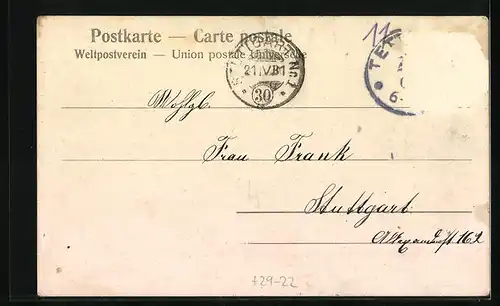 Postkarte — Carte postale
Weltpostverein — Union postale universelle
11
STUTTGART No. 1
21.IV.31
30
TET
6-
Wohlgb.
Frau Frank
Stuttgart
Alexanderst 162
t29-22